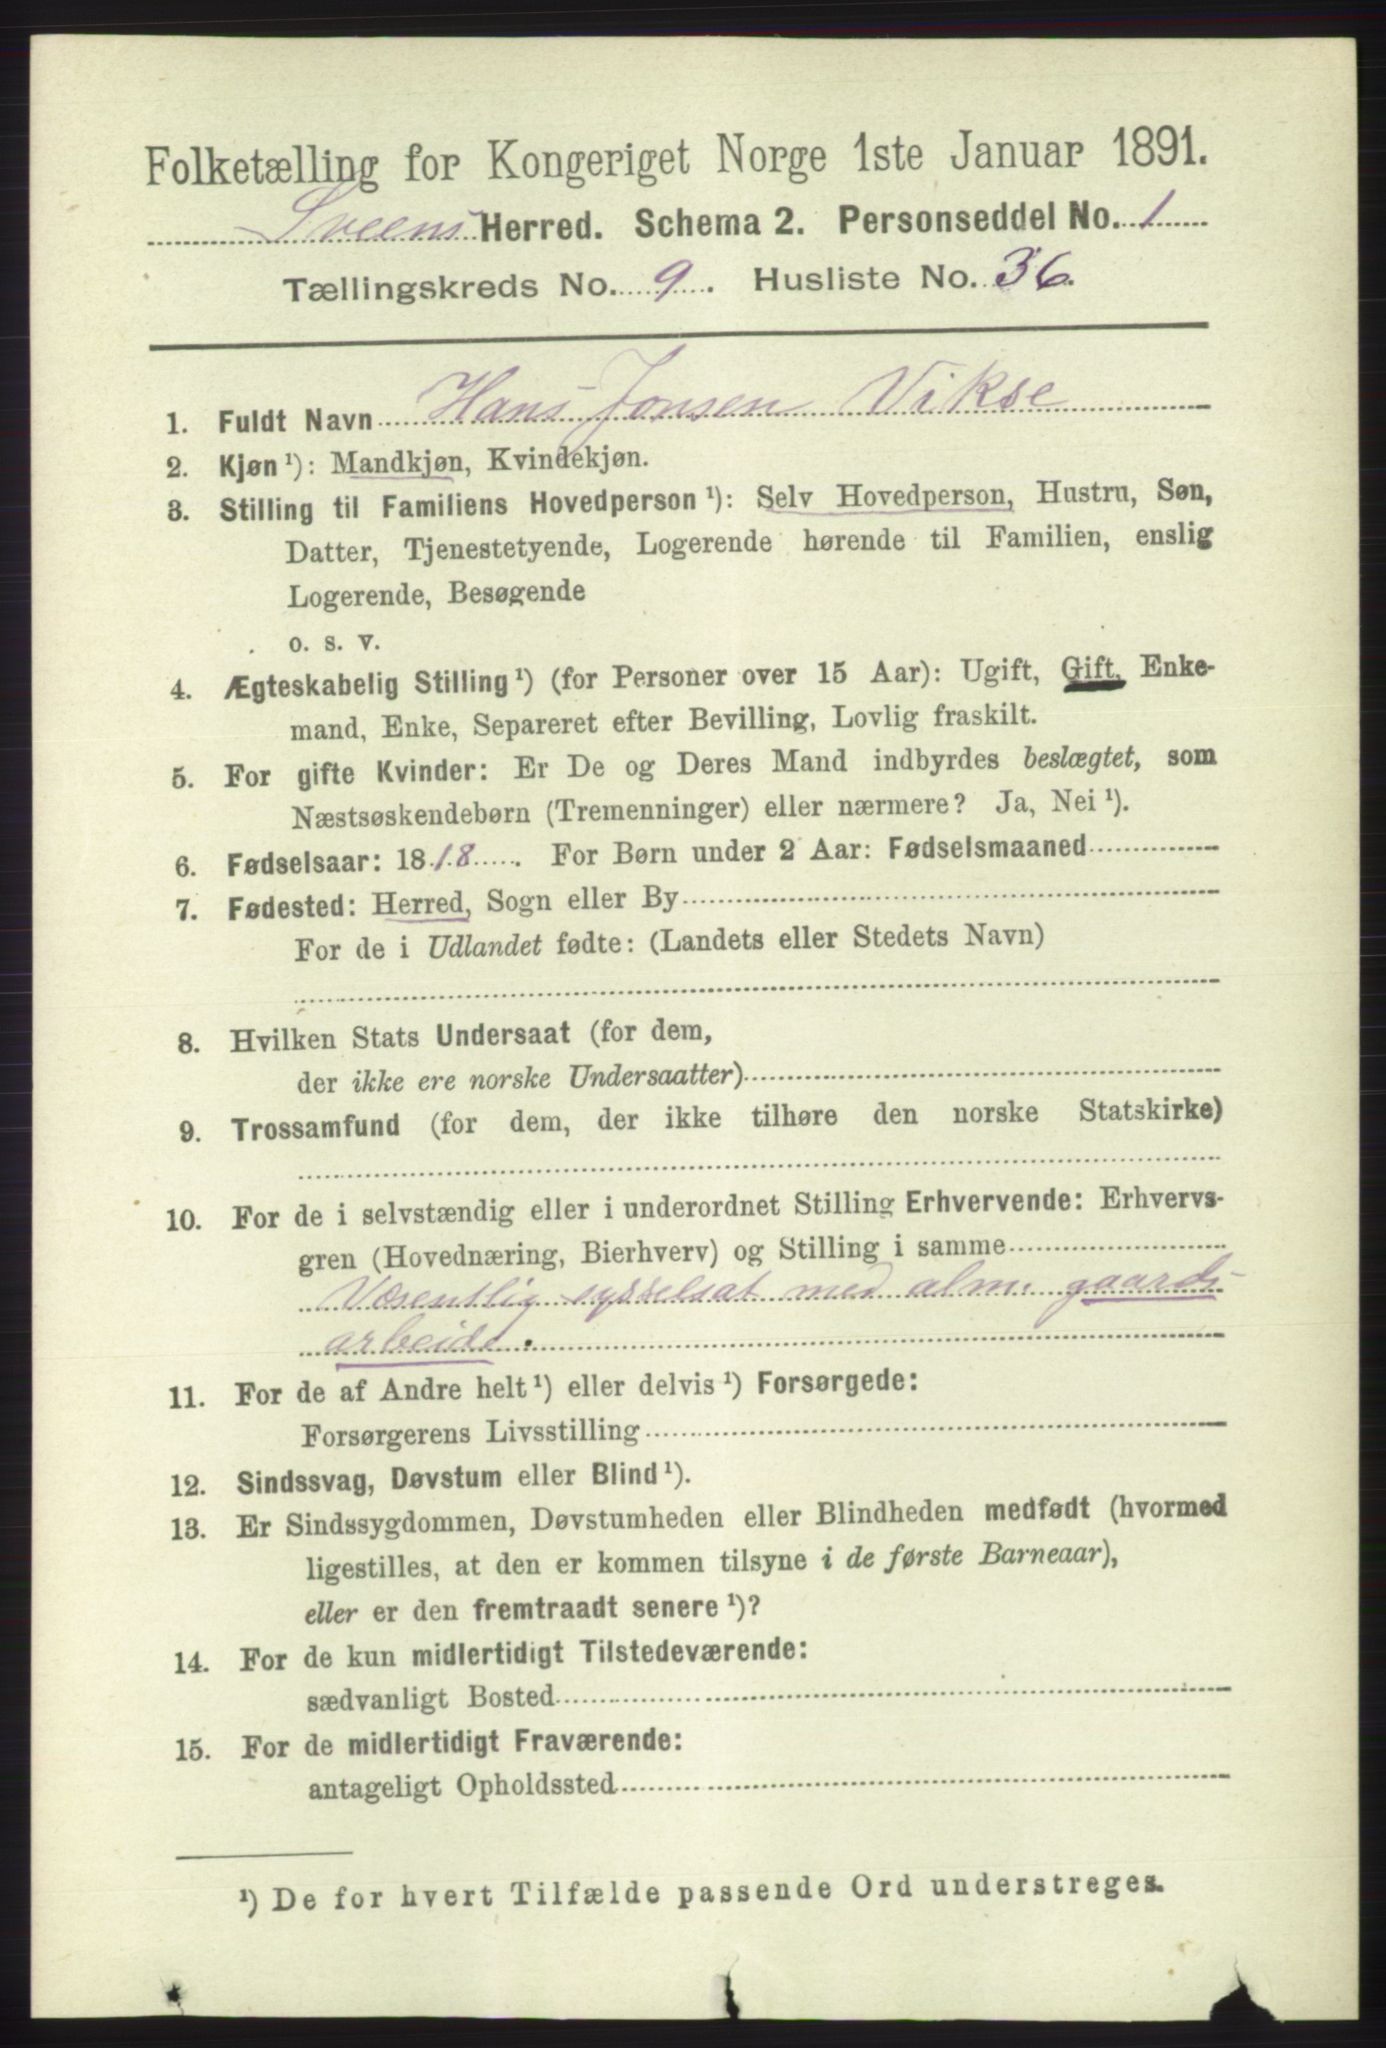 Folketælling for Kongeriget Norge 1ste Januar 1891.
Sveens Herred. Schema 2. Personseddel No. 1
Tællingskreds No. 9. Husliste No. 36.
1. Fuldt Navn Hans Jonsen Vikse
2. Kjøn ¹): Mandkjøn, Kvindekjøn.
3. Stilling til Familiens Hovedperson ¹): Selv Hovedperson, Hustru, Søn,
Datter, Tjenestetyende, Logerende hørende til Familien, enslig
Logerende, Besøgende
o. s. v.
4. Ægteskabelig Stilling ¹) (for Personer over 15 Aar): Ugift, Gift, Enke-
mand, Enke, Separeret efter Bevilling, Lovlig fraskilt.
5. For gifte Kvinder: Er De og Deres Mand indbyrdes beslægtet, som
Næstsøskendebørn (Tremenninger) eller nærmere? Ja, Nei ¹).
6. Fødselsaar: 1818. For Børn under 2 Aar: Fødselsmaaned
7. Fødested: Herred, Sogn eller By
For de i Udlandet fødte: (Landets eller Stedets Navn)
8. Hvilken Stats Undersaat (for dem,
der ikke ere norske Undersaatter)
9. Trossamfund (for dem, der ikke tilhøre den norske Statskirke)
10. For de i selvstændig eller i underordnet Stilling Erhvervende: Erhvervs-
gren (Hovednæring, Bierhverv) og Stilling i samme
Væsentlig sysselsat med alm. gaards-
arbeide.
11. For de af Andre helt ¹) eller delvis ¹) Forsørgede:
Forsørgerens Livsstilling
12. Sindssvag, Døvstum eller Blind ¹).
13. Er Sindssygdommen, Døvstumheden eller Blindheden medfødt (hvormed
ligestilles, at den er kommen tilsyne i de første Barneaar),
eller er den fremtraadt senere ¹)?
14. For de kun midlertidigt Tilstedeværende:
sædvanligt Bosted
15. For de midlertidigt Fraværende:
antageligt Opholdssted
¹) De for hvert Tilfælde passende Ord understreges.